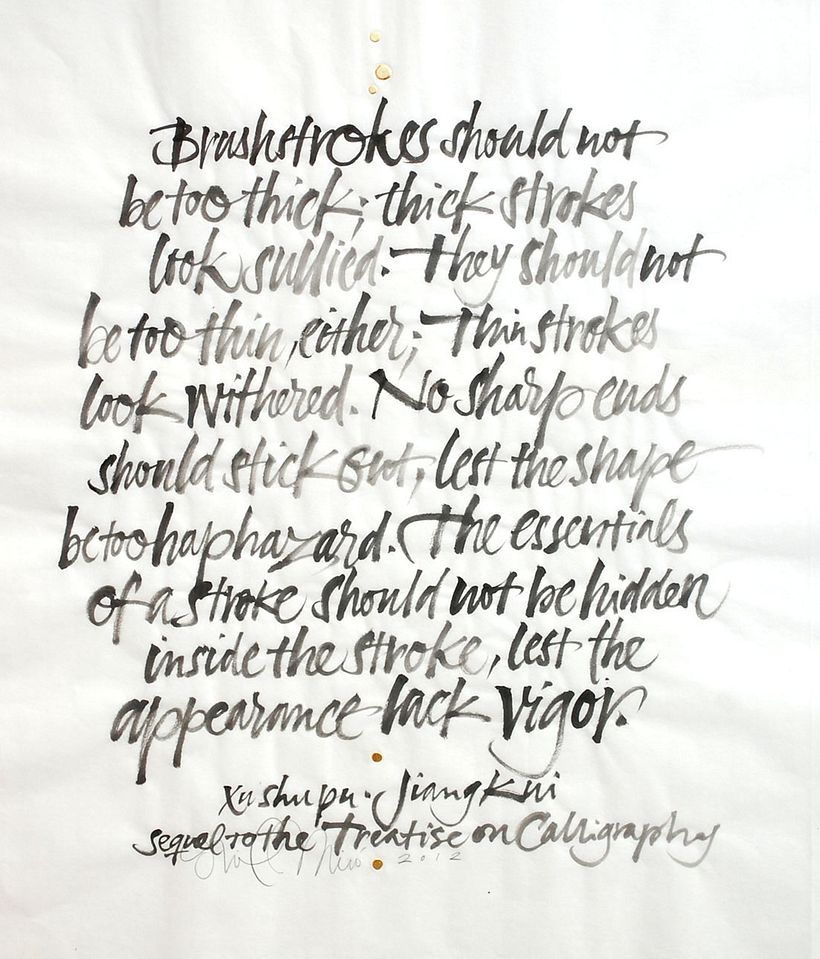 Brushstrokes should not
be too thick; thick strokes
look sullied. They should not
be too thin, either; Thin strokes
look withered. No sharp ends
should stick out, lest the shape
be too haphazard. The essentials
of a stroke should not be hidden
inside the stroke, lest the
appearance lack vigor.
Xu shu pu. Jiang Kui
sequel to the Treatise on Calligraphy
2012